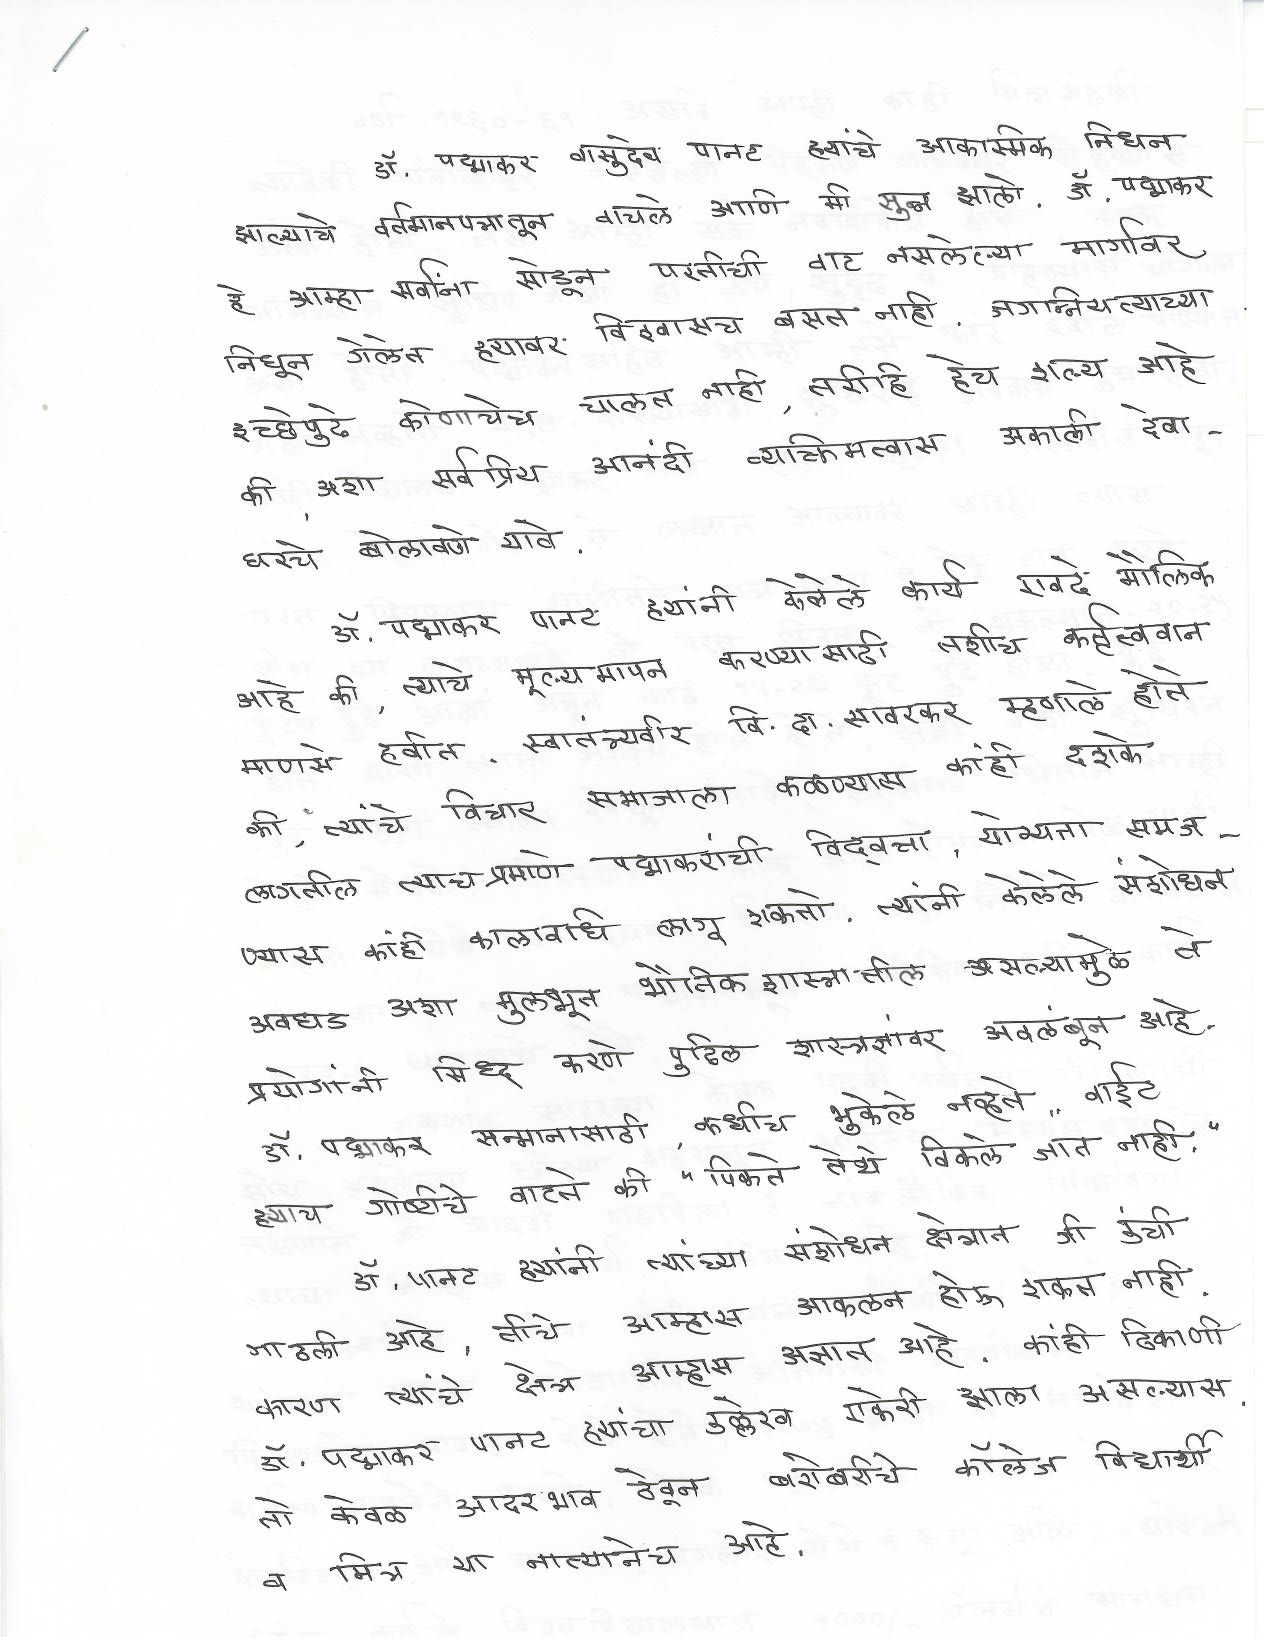 डॉ. पद्माकर वासुदेव पानट ह्यांचे आकास्मिक निधन
झाल्याचे वर्तमानपत्रातून वाचले आणि मी सुन्न झालो. डॉ. पद्माकर
हे आम्हा सर्वांना सोडून परतीची वाट नसलेल्या मार्गावर
निघून गेलेत ह्यावर विश्वासच बसत नाही. जगान्नियत्याच्या
इच्छेपुढे कोणाचेच चालत नाही, तरीहि हेच शल्य आहे
की, अशा सर्वप्रिय आनंदी व्यक्तिमत्वास अकाली देवा-
घरचे बोलावणे यावे.
डॉ. पद्माकर पानट ह्यांनी केलेले कार्य एवढे मौलिक
आहे की, त्याचे मूल्यमापन करण्यासाठी तशीच कर्तृत्ववान
माणसे हवीत. स्वातंत्र्यवीर वि. दा. सावरकर म्हणाले होते
की, त्यांचे विचार समाजाला कळण्यास कांही दशके
लागतील त्याचप्रमाणे पद्माकरांची विद्वत्ता, योग्यता समज-
ण्यास कांही कालावधि लागू शकतो. त्यांनी केलेले संशोधन
अवघड अशा मुलभूत भौतिकशास्त्रातील असल्यामुळे ते
प्रयोगांनी सिध्द करणे पुढिल शास्त्रज्ञांवर अवलंबून आहे.
डॉ. पद्माकर सन्मानासाठी कधीच भुकेले नव्हते.. वाईट
ह्याच गोष्टीचे वाटते की "पिकते तेथे विकले जात नाही."
डॉ. पानट ह्यांनी त्यांच्या संशोधन क्षेत्रात जी उंची
गाठली आहे, तीचे आम्हास आकलन होऊ शकत नाही.
कारण त्यांचे क्षेत्र आम्हास अज्ञात आहे. कांही ठिकाणी
डॉ. पद्माकर पानट ह्यांचा उल्लेख एकेरी झाला असल्यास.
तो केवळ आदरभाव ठेवून बरोबरीचे कॉलेज विद्यार्थी
व मित्र या नात्यानेच आहे.